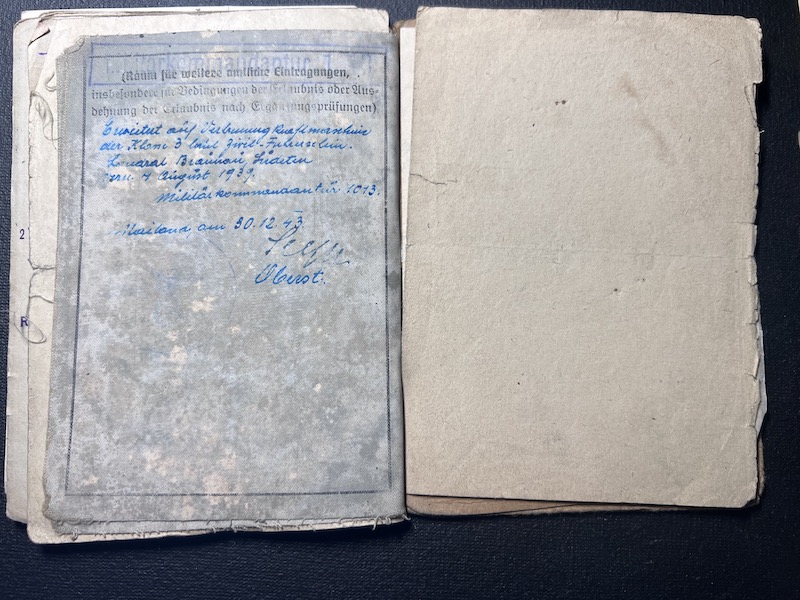 (Raum für weitere amtliche Eintragungen,
insbesondere für Bedingungen der Erlaubnis oder Aus-
dehnung der Erlaubnis nach Ergänzungsprüfungen)
Erweitert auf Verbrennungskraftmaschine
der Klasse 3 laut Zivil-Führerschein.
Landrat Braunau, Sudeten
vom 4 August 1939.
Militärkommandantur 1013.
Mailand, am 30.12.43
Oberst.
2
R